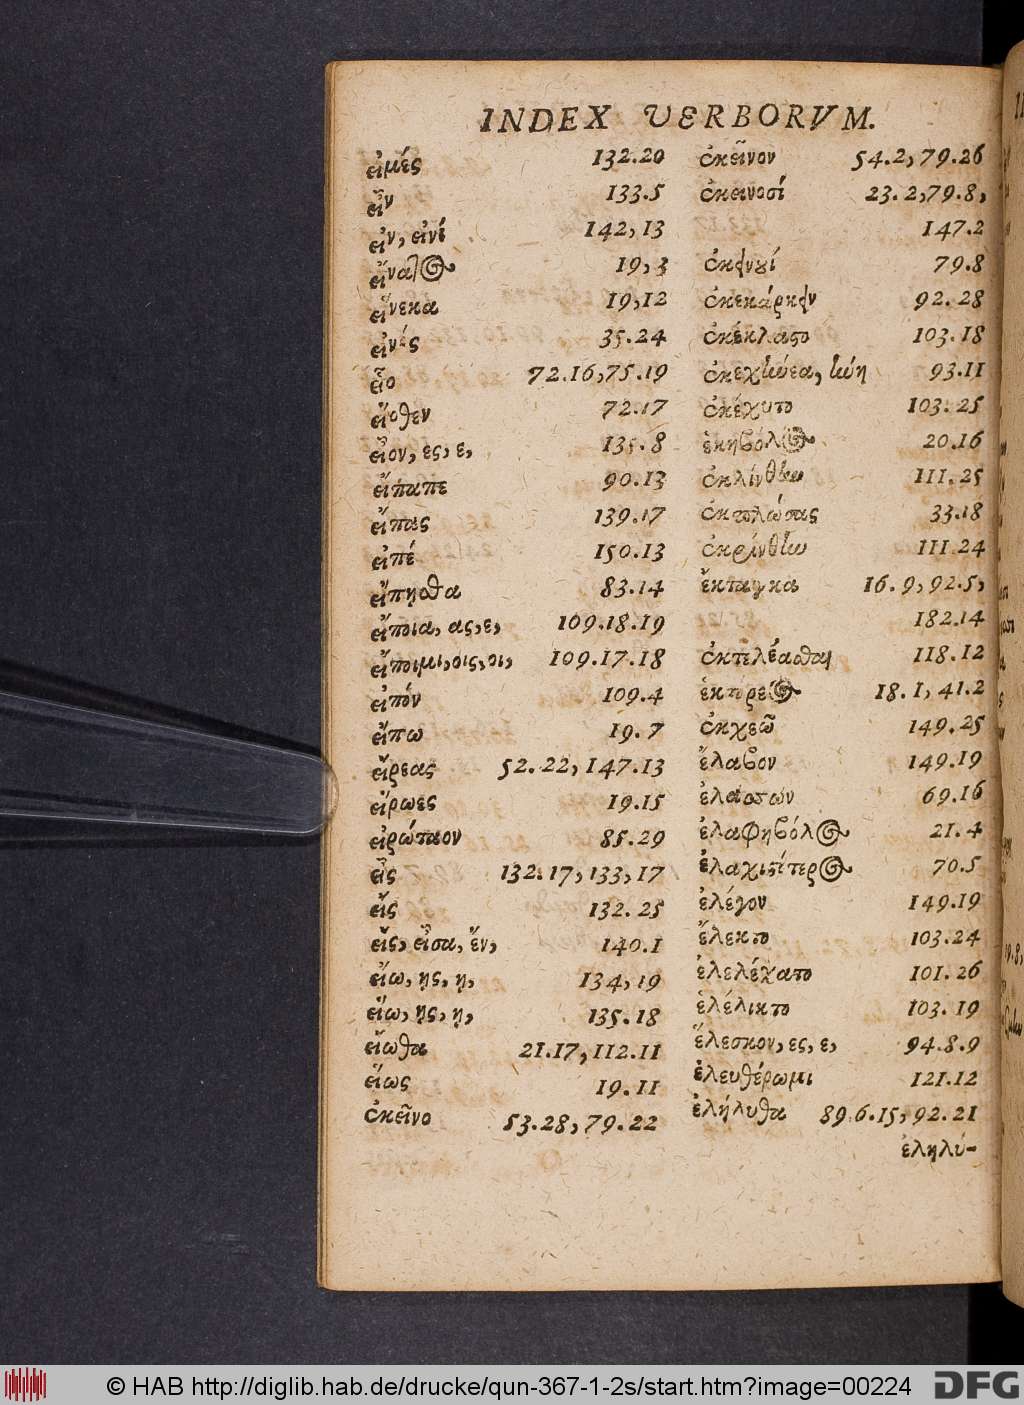 INDEX VERBORVM.
εἰμές 132.20
εἶν 133.5
εἰν, εἰνί 142,13
19,3
εἵνεκα 19,12
εἰνές 35.24
εἷο 72.16,75.19
εἵοθεν 72.17
εἶον, ες, ε, 135.8
εἴπαπε 90.13
εἴπας 139.17
εἰπέ 150.13
εἴπῃσθα 83.14
εἴποια, ας, ε, 109.18.19
εἴποιμι, οις, οι, 109.17.18
εἰπόν 109.4
εἴπω 19.7
εἴρεας 52.22,147.13
εἴρωες 19.15
εἰρώταον 85.29
εἶς 132.17,133,17
εἴς 132.25
εἴς, εἶσα, ἕν, 140.1
εἴω, ῃς, ῃ, 134,19
εἵω, ῃς, ῃ, 135.18
εἴωθα 21.17,112.11
εἵως 19.11
ἐκεῖνο 53.28,79.22
ἐκεῖνον 54.2,79.26
ἐκεινοσί 23.2,79.8,
147.2
79.8
ἐκεκάρκειν 92.28
ἐκέκλατο 103.18
93.11
ἐκέχυτο 103.25
ἑκηβόλος 20.16
ἐκλίνθην 111.25
ἐκπλώσας 33.18
ἐκρίνθην 111.24
ἔκταγκα 16.9,92.5,
182.14
ἐκτελέασθαι 118.12
18.1,41.2
ἐκχεῶ 149.25
ἔλαβον 149.19
69.16
ἐλαφηβόλος 21.4
ἐλαχιστότερος 70.5
ἐλέγον 149.19
ἔλεκτο 103.24
ἐλελέχατο 101.26
ἐλέλικτο 103.19
ἕλεσκον, ες, ε, 94.8.9
ἐλευθέρωμι 121.12
ἐλήλυθα 89.6.15,92.21
ἐληλύ-
© HAB http://diglib.hab.de/drucke/qun-367-1-2s/start.htm?image=00224
DFG